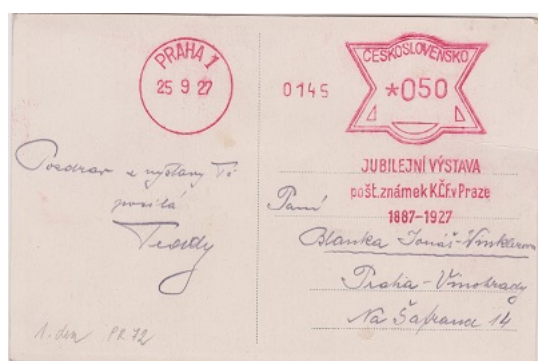 PRAHA 1
25 9 27
0145
ČESKOSLOVENSKO
*050
JUBILEJNÍ VÝSTAVA
pošt. známek KČF v Praze
1887-1927
Pozdrav z výstavy Ti
posílá
Teddy
Paní
Blanka Jonáš-Winklerova
Praha-Vinohrady
Na Šafrance 14
1. den PR 72